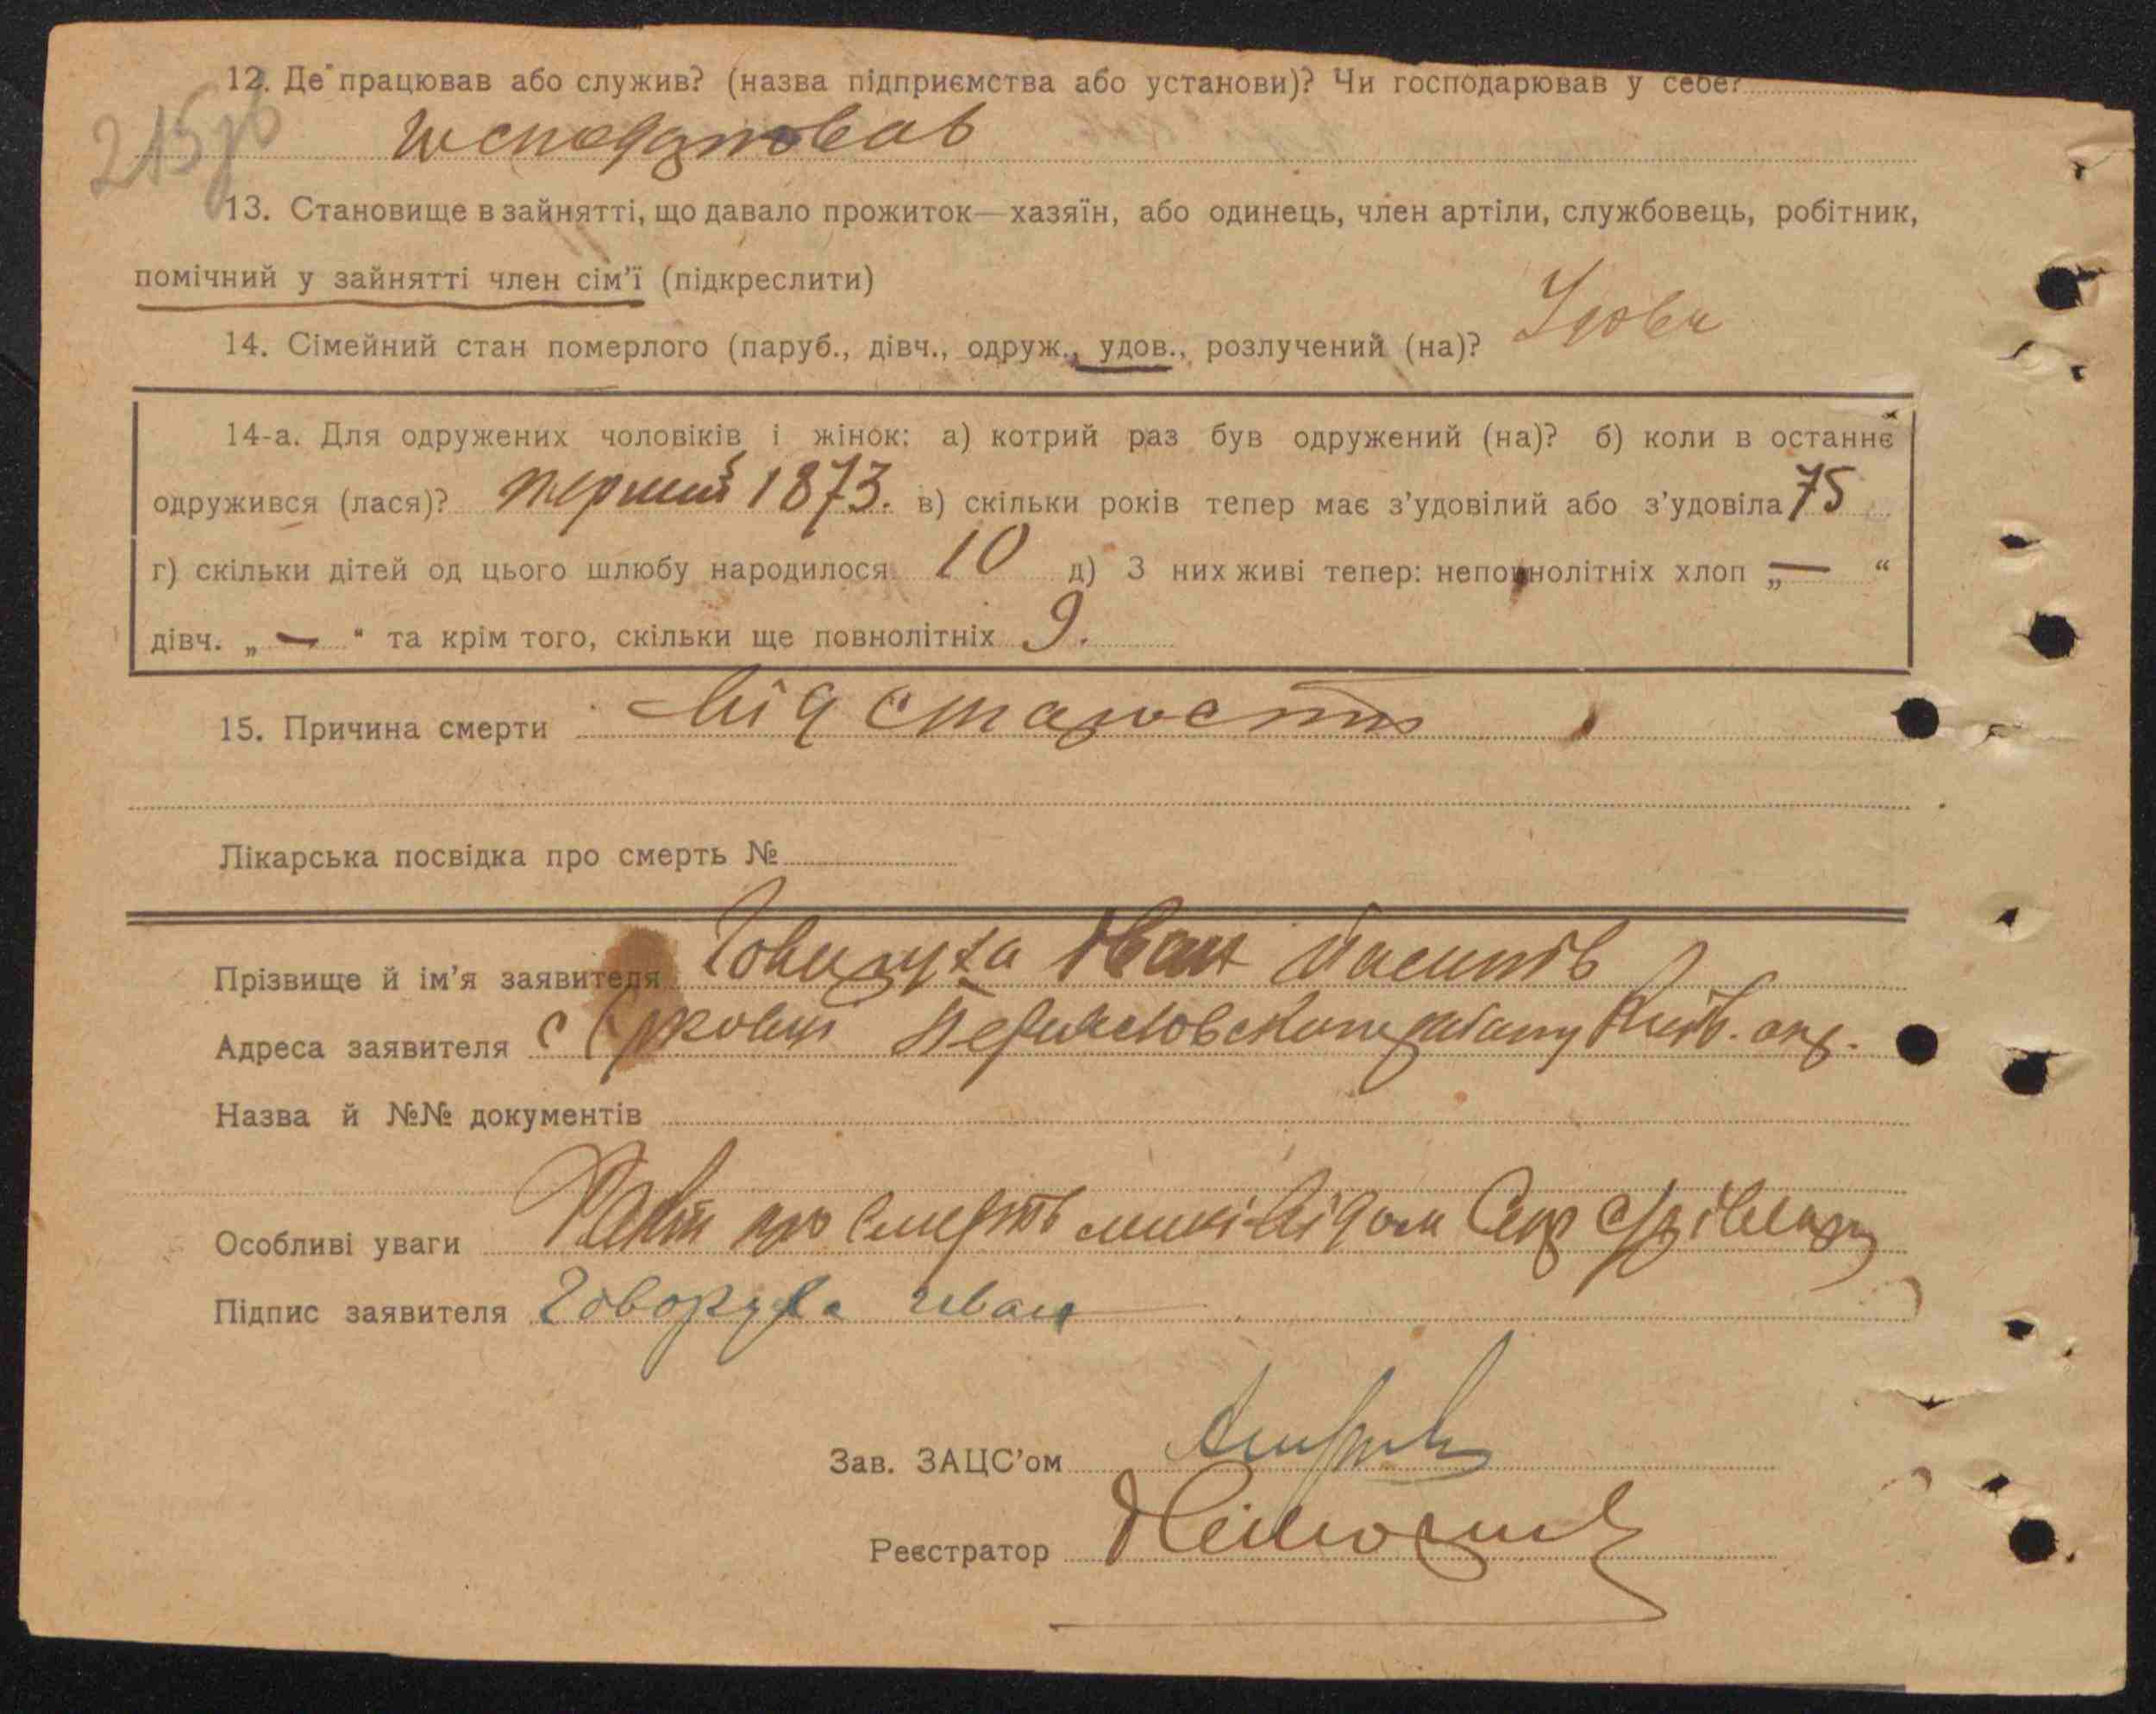 215зв
12. Де працював або служив? (назва підприємства або установи)? Чи господарював у себе?
господарював
13. Становище в зайнятті, що давало прожиток—хазяїн, або одинець, член артіли, службовець, робітник,
помічний у зайнятті член сім'ї (підкреслити)
14. Сімейний стан померлого (паруб., дівч., одруж., удов., розлучений (на)? Удова
14-а. Для одружених чоловіків і жінок: а) котрий раз був одружений (на)? б) коли в останнє
одружився (лася)? перший 1873. в) скільки років тепер має з'удовілий або з'удовіла 75
г) скільки дітей од цього шлюбу народилося 10 д) З них живі тепер: неповнолітніх хлоп „—“
дівч. „—“ та крім того, скільки ще повнолітніх 9.
15. Причина смерти від старости
Лікарська посвідка про смерть №
Прізвище й ім'я заявителя Говоруха Іван
Адреса заявителя с Переяславского району Київ. окр.
Назва й №№ документів
Особливі уваги Факт про смерть
Підпис заявителя Говоруха Иван
Зав. ЗАЦС'ом
Реєстратор